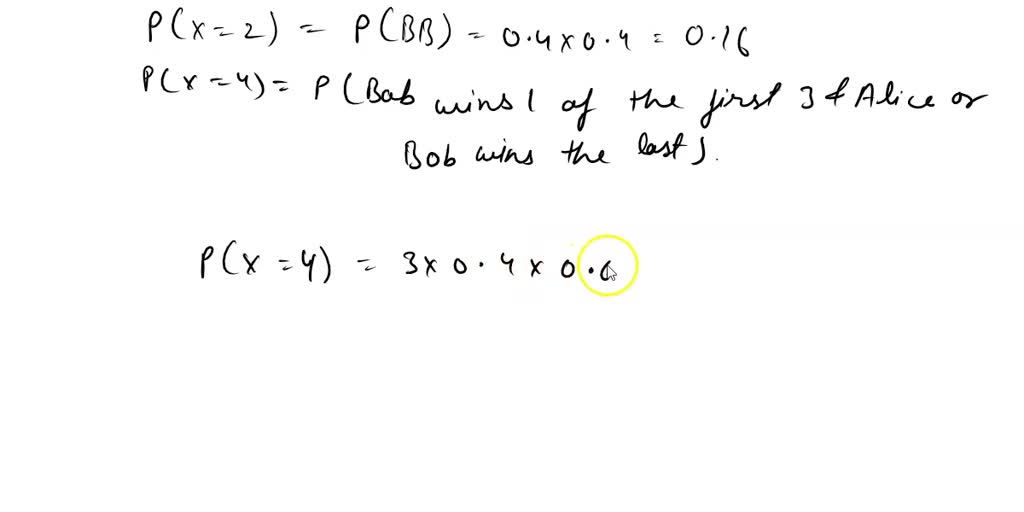 P(X=2) = P(BB) = 0.4x0.4 = 0.16
P(X=4) = P(Bob wins 1 of the first 3 & Alice or
Bob wins the last).
P(X=4) = 3x0.4x0.6